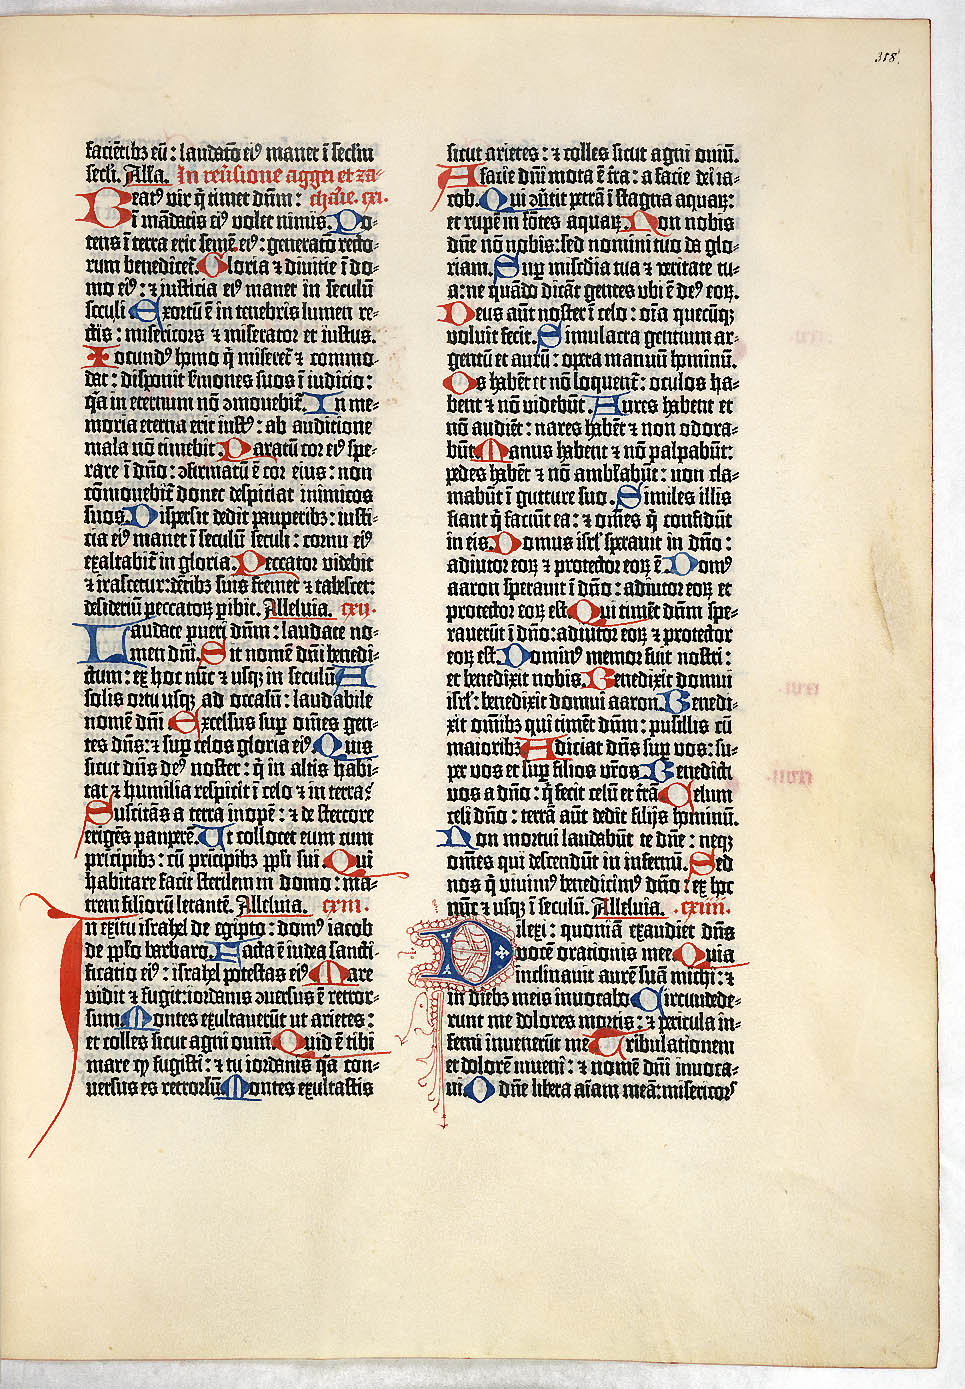 318.
facientibꝫ eū: laudatō eiꝰ manet ī seclm
secli. Alla. In reūsione aggei et za-
Beatꝰ vir q̄ timet dnm: charie. cxi.
ī mādatis eiꝰ volet nimis. Po-
tens ī terra erit semē eiꝰ: generatō recto-
rum benedicet̄. Gloria ⁊ diuitie ī do-
mo eiꝰ: ⁊ iusticia eiꝰ manet in seculū
seculi Exortū ē in tenebris lumen re-
ctis: misericors ⁊ miserator et iustus.
Iocundꝰ homo q̄ miseret̄ ⁊ commo-
dat: disponit s̄mones suos ī iudicio:
q̄a in eternum nō ɔmouebit̄. In me-
moria eterna erit iustꝰ: ab auditione
mala nō timebit. Paratū cor eiꝰ spe-
rare ī dno: ɔfirmatū ē cor eius: non
cōmouebit̄ donec despiciat inimicos
suos. Dispersit dedit pauperibꝫ: iusti-
cia eiꝰ manet ī seculū seculi: cornu eiꝰ
exaltabit̄ in gloria. Peccator videbit
⁊ irascetur: dētibꝫ suis fremet ⁊ tabescet:
desideriū peccatoꝝ peribit. Alleluia. cxii.
Laudate pueri dnm: laudate no-
men dni. Sit nomē dni benedi-
ctum: ex hoc nūc ⁊ usqꝫ in seculū A
solis ortu usqꝫ ad occasū: laudabile
nomē dni Excelsus sup omēs gen-
tes dns: ⁊ sup celos gloria eiꝰ. Quis
sicut dns deꝰ noster: q̄ in altis habi-
tat ⁊ humilia respicit ī celo ⁊ in terra?
Suscitās a terra inopē: ⁊ de stercore
erigēs pauperē. Ut collocet eum cum
pricipibꝫ: cū pricipibꝫ ppli sui. Qui
habitare facit sterilem in domo: ma-
trem filiorū letantē. Alleluia. cxiii.
In exitu israhel de egipto: domꝰ iacob
de pplo barbaro. Facta ē iudea sancti-
ficatio eiꝰ: israhel potestas eiꝰ Mare
vidit ⁊ fugit: iordanis ɔuersus ē retror-
sum Montes exultauerūt ut arietes:
et colles sicut agni ouiū. Quid ē tibi
mare qp fugisti: ⁊ tu iordanis q̄a con-
uersus es retrorsū Montes exultastis
sicut arietes: ⁊ colles sicut agni ouiū.
A facie dni mota ē t̄ra: a facie dei ia-
cob. Qui ɔūtit petrā ī stagna aquaꝝ:
et rupē in fōtes aquaꝝ. Non nobis
dne nō nobis: sed nomini tuo da glo-
riam. Sup miscdia tua ⁊ veritate tu-
a: ne quādo dicāt gentes vbi ē deꝰ eoꝝ.
Deus aut̄ noster ī celo: oīa quecūqꝫ
voluit fecit. Simulacra gentium ar-
gentū et aurū: opera manuū hominū.
Os habēt et nō loquent̄: oculos ha-
bent ⁊ nō videbūt. Aures habent et
nō audiēt: nares habēt ⁊ non odora-
būt. Manus habent ⁊ nō palpabūt:
pedes habēt ⁊ nō amblabūt: non cla-
mabūt ī gutture suo. Similes illis
fiant q̄ faciūt ea: ⁊ omēs q̄ confidūt
in eis. Domus isrl sperauit in dno:
adiutor eoꝝ ⁊ protector eoꝝ ē. Domꝰ
aaron sperauit ī dno: adiutor eoꝝ et
protector eoꝝ est Qui timēt dnm spe-
rauerūt ī dno: adiutor eoꝝ ⁊ protector
eoꝝ est. Dominꝰ memor fuit nostri:
et benedixit nobis. Benedixit domui
isrl: benedixit domui aaron. Benedi-
xit omībꝫ qui timēt dnm: pusillis cū
maioribꝫ. Adiciat dns sup vos: su-
per vos et sup filios vr̄os. Benedicti
vos a dno: q̄ fecit celū et t̄rā Celum
celi dno: terrā aut̄ dedit filijs hominū.
Non mortui laudabūt te dne: neqꝫ
omēs qui descendūt in infernū. Sed
nos q̄ viuimꝰ benedicimꝰ dno: ex hoc
nūc ⁊ usqꝫ ī seculū. Alleluia. cxiiii.
Dilexi: quoniā exaudiet dns
vocē orationis mee Quia
inclinauit aurē suā michi: ⁊
in diebꝫ meis inuocabo Circundede-
runt me dolores mortis: ⁊ pericula in-
ferni inuenerūt me Tribulationem
et dolorē inueni: ⁊ nomē dni inuoca-
ui. O dne libera aīam meā: misericors